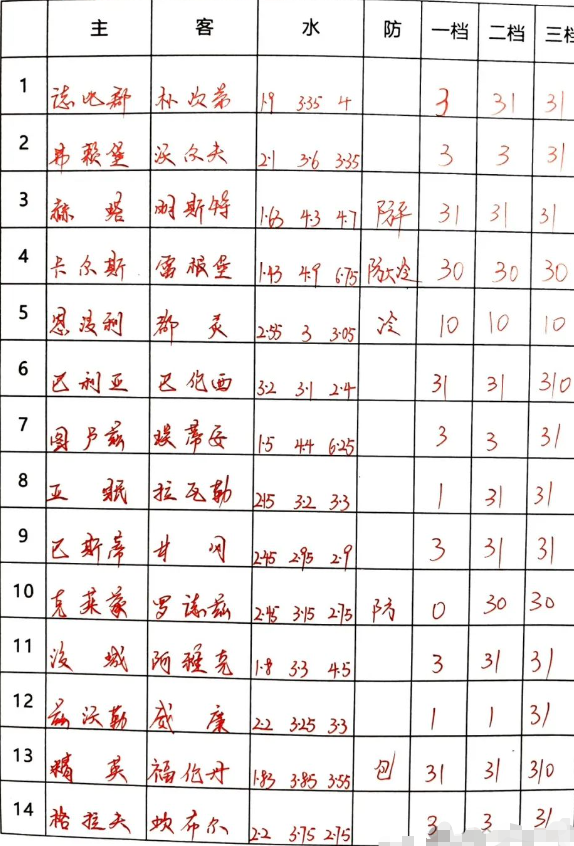 主 客 水 防 一档 二档 三档
1 诺北郡 朴次茅 1.9 3.35 4 3 31 31
2 弗赖堡 沃尔夫 2.1 3.6 3.35 3 3 31
3 赫塔 明斯特 1.63 4.3 4.7 防平 31 31 31
4 卡尔斯 雷根堡 1.43 4.9 6.75 防大冷 30 30 30
5 恩波利 都灵 2.55 3 3.05 冷 10 10 10
6 巴利亚 巴伦西 3.2 3.1 2.4 31 31 310
7 图卢兹 埃蒂安 1.5 4.4 6.25 3 3 31
8 亚眠 拉瓦勒 2.15 3.2 3.3 1 31 31
9 巴斯蒂 甘冈 2.45 2.95 2.9 3 31 31
10 克莱蒙 罗德兹 2.45 3.15 2.75 防 0 30 30
11 波城 阿雅克 1.8 3.3 4.5 3 31 31
12 兹沃勒 威廉 2.2 3.25 3.3 1 1 31
13 精英 福伦丹 1.83 3.85 3.55 包 31 31 310
14 格拉夫 坎布尔 2.2 3.75 2.75 3 3 31